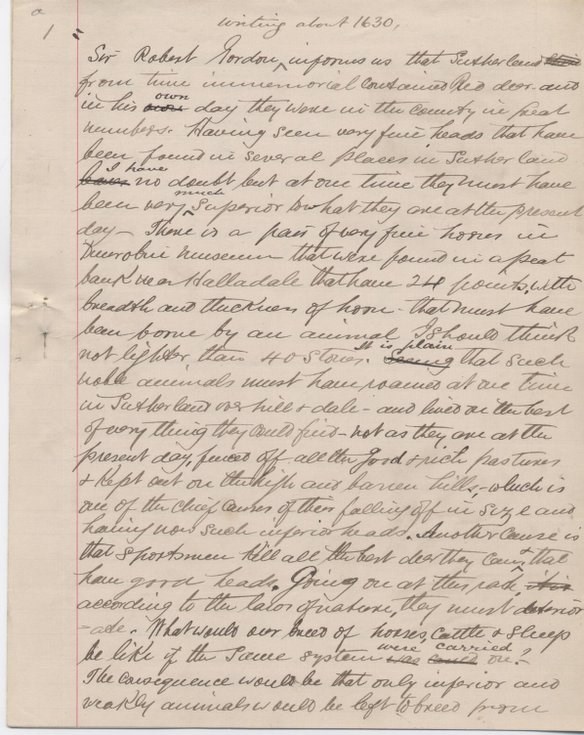 a
1
writing about 1630,
Sir Robert Gordon, informs us that Sutherland
from time immemorial contained Red deer - and
in his own day they were in the county in great
numbers. Having seen very fine heads that have
been found in several places in Sutherland
I have no doubt but at one time they must have
been very much superior to what they are at the present
day - There is a pair of very fine horns in
Dunrobin Museum that were found in a peat
bank near Halladale that have 24 points, with
breadth and thickness of horn - that must have
been borne by an animal I should think
not lighter than 40 Stones. It is plain Seeing that such
noble animals must have roamed at one time
in Sutherland over hill & dale - and lived on the best
of every thing they could find - not as they are at the
present day, fenced off all the good & rich pastures
& kept out on the high and barren hills, - which is
one of the chief causes of their falling off in size and
having now such inferior heads. Another cause is
that Sportsmen kill all the best deer they can & that
have good heads. Going on at this rate,
according to the laws of nature, they must deterior
-ate. What would our breed of horses, Cattle & Sheep
be like if the same system were carried on? -
The consequence would be that only inferior and
weakly animals would be left to breed from